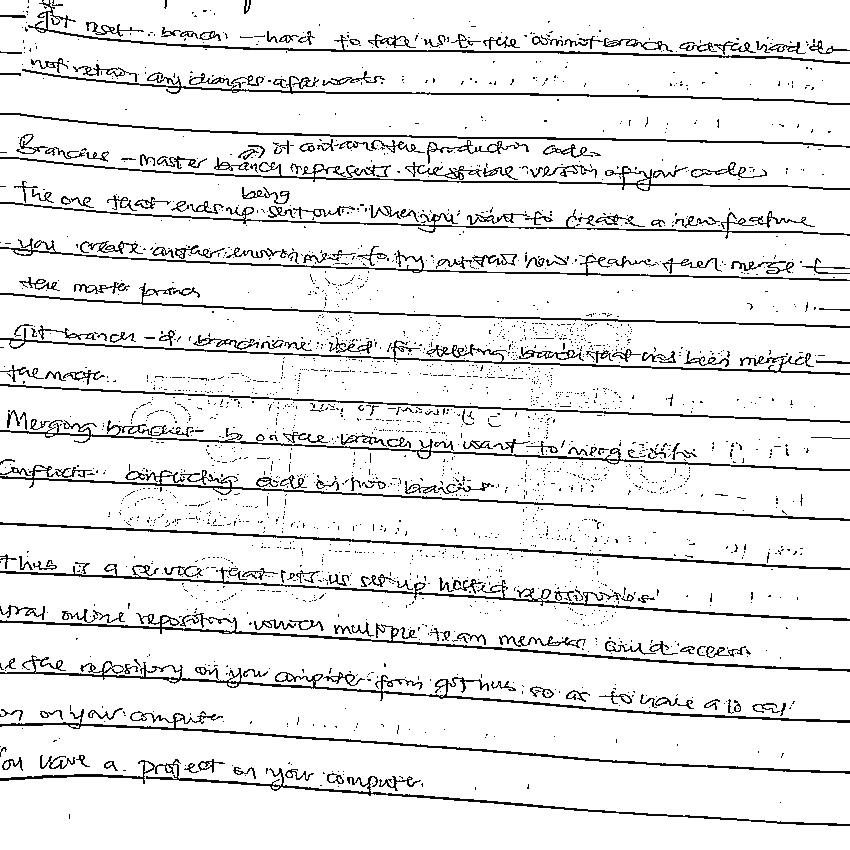 git reset branch --hard to take us to the commit branch and the hard do
not retain any changes afterwards.
it contains the production code
Branches - master branch represents the stable version of your code
being
the one that ends up sent out. When you want to create a new feature
you create another environment to try out this new feature then merge t
the master branch
git branch -d branchname used for deleting branch that has been merged
the master.
Merging branches - be on the branch you want to merge
Conflicts - conflicting code on two branches
thub is a service that lets us set up hosted repositories
online repository which multiple team members could access
the repository on your computer from git hub so as to have a local
on on your computer
You have a project on your computer.